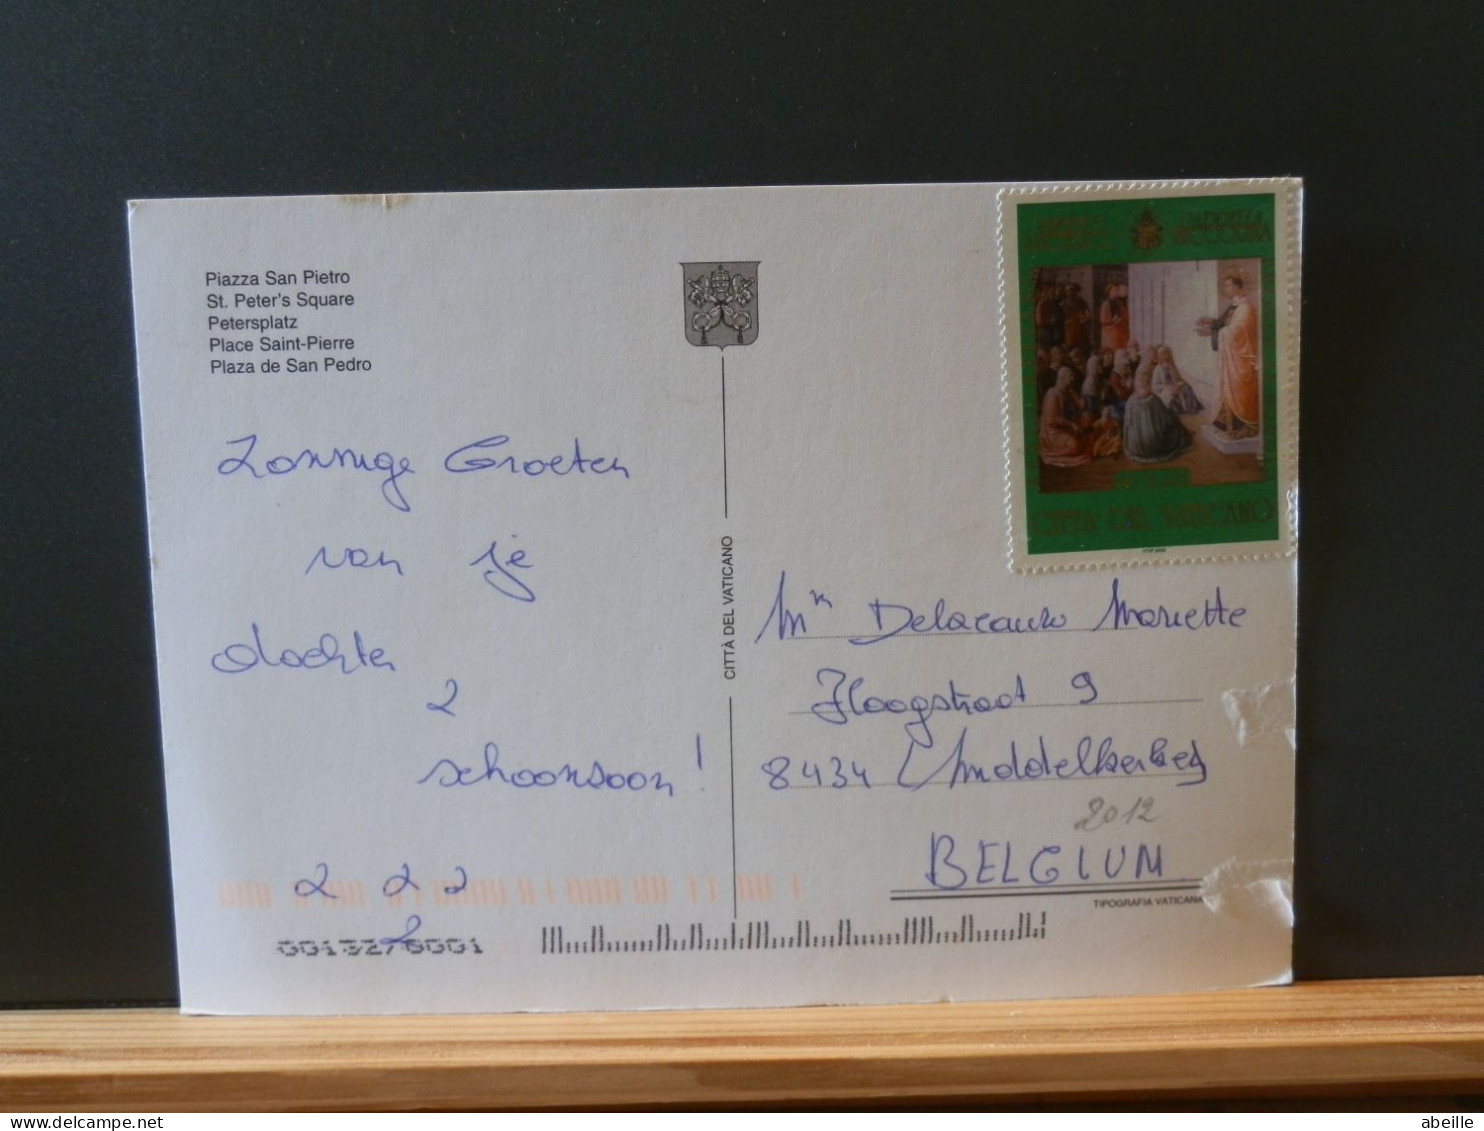 Piazza San Pietro
St. Peter's Square
Petersplatz
Place Saint-Pierre
Plaza de San Pedro
CITTÀ DEL VATICANO
Zonnige Groeten
van je
dochter
2
schoonzoon!
2 2 2
2
0013276001
CITTA DEL VATICANO
Mariette
Hoogstraat 9
8434 Middelkerke
2012
BELGIUM
TIPOGRAFIA VATICANA
abeille